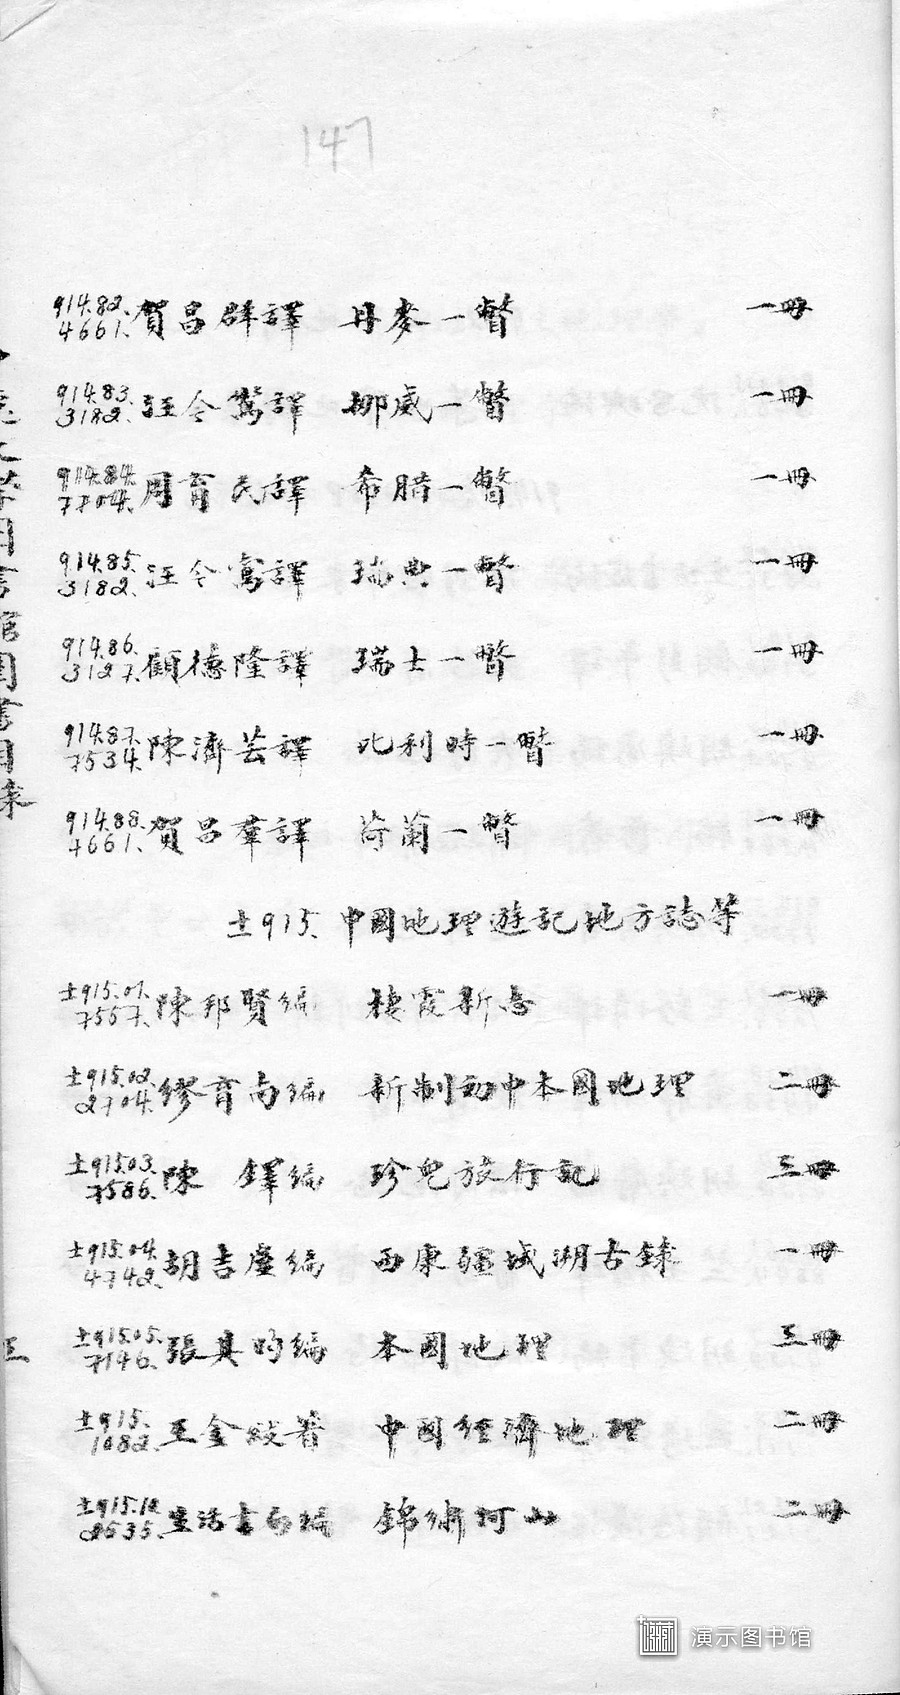 147
914.82. 4661. 賀昌群譯 丹麥一瞥 一冊
914.83. 3182. 汪今鸞譯 挪威一瞥 一冊
914.84. 7704. 周育民譯 希腊一瞥 一冊
914.85. 3182. 汪今鸞譯 瑞典一瞥 一冊
914.86. 3127. 顧德隆譯 瑞士一瞥 一冊
914.87. 7534. 陳濟芸譯 比利時一瞥 一冊
914.88. 4661. 賀昌羣譯 荷蘭一瞥 一冊
士915. 中國地理遊記地方誌等
士915.01. 7557. 陳邦賢編 棲霞新志 一冊
士915.02. 2704. 繆育南編 新制初中本國地理 二冊
士915.03. 7586. 陳 鐸編 珍兒旅行記 三冊
士915.04. 4742. 胡吉廬編 西康疆域溯古錄 一冊
士915.05. 7146. 張其昀編 本國地理 三冊
士915. 1082. 王金紱著 中國經濟地理 二冊
士915.12 2535. 生活書局編 錦綉河山 二冊
圖書館圖書目錄
三
演示图书馆